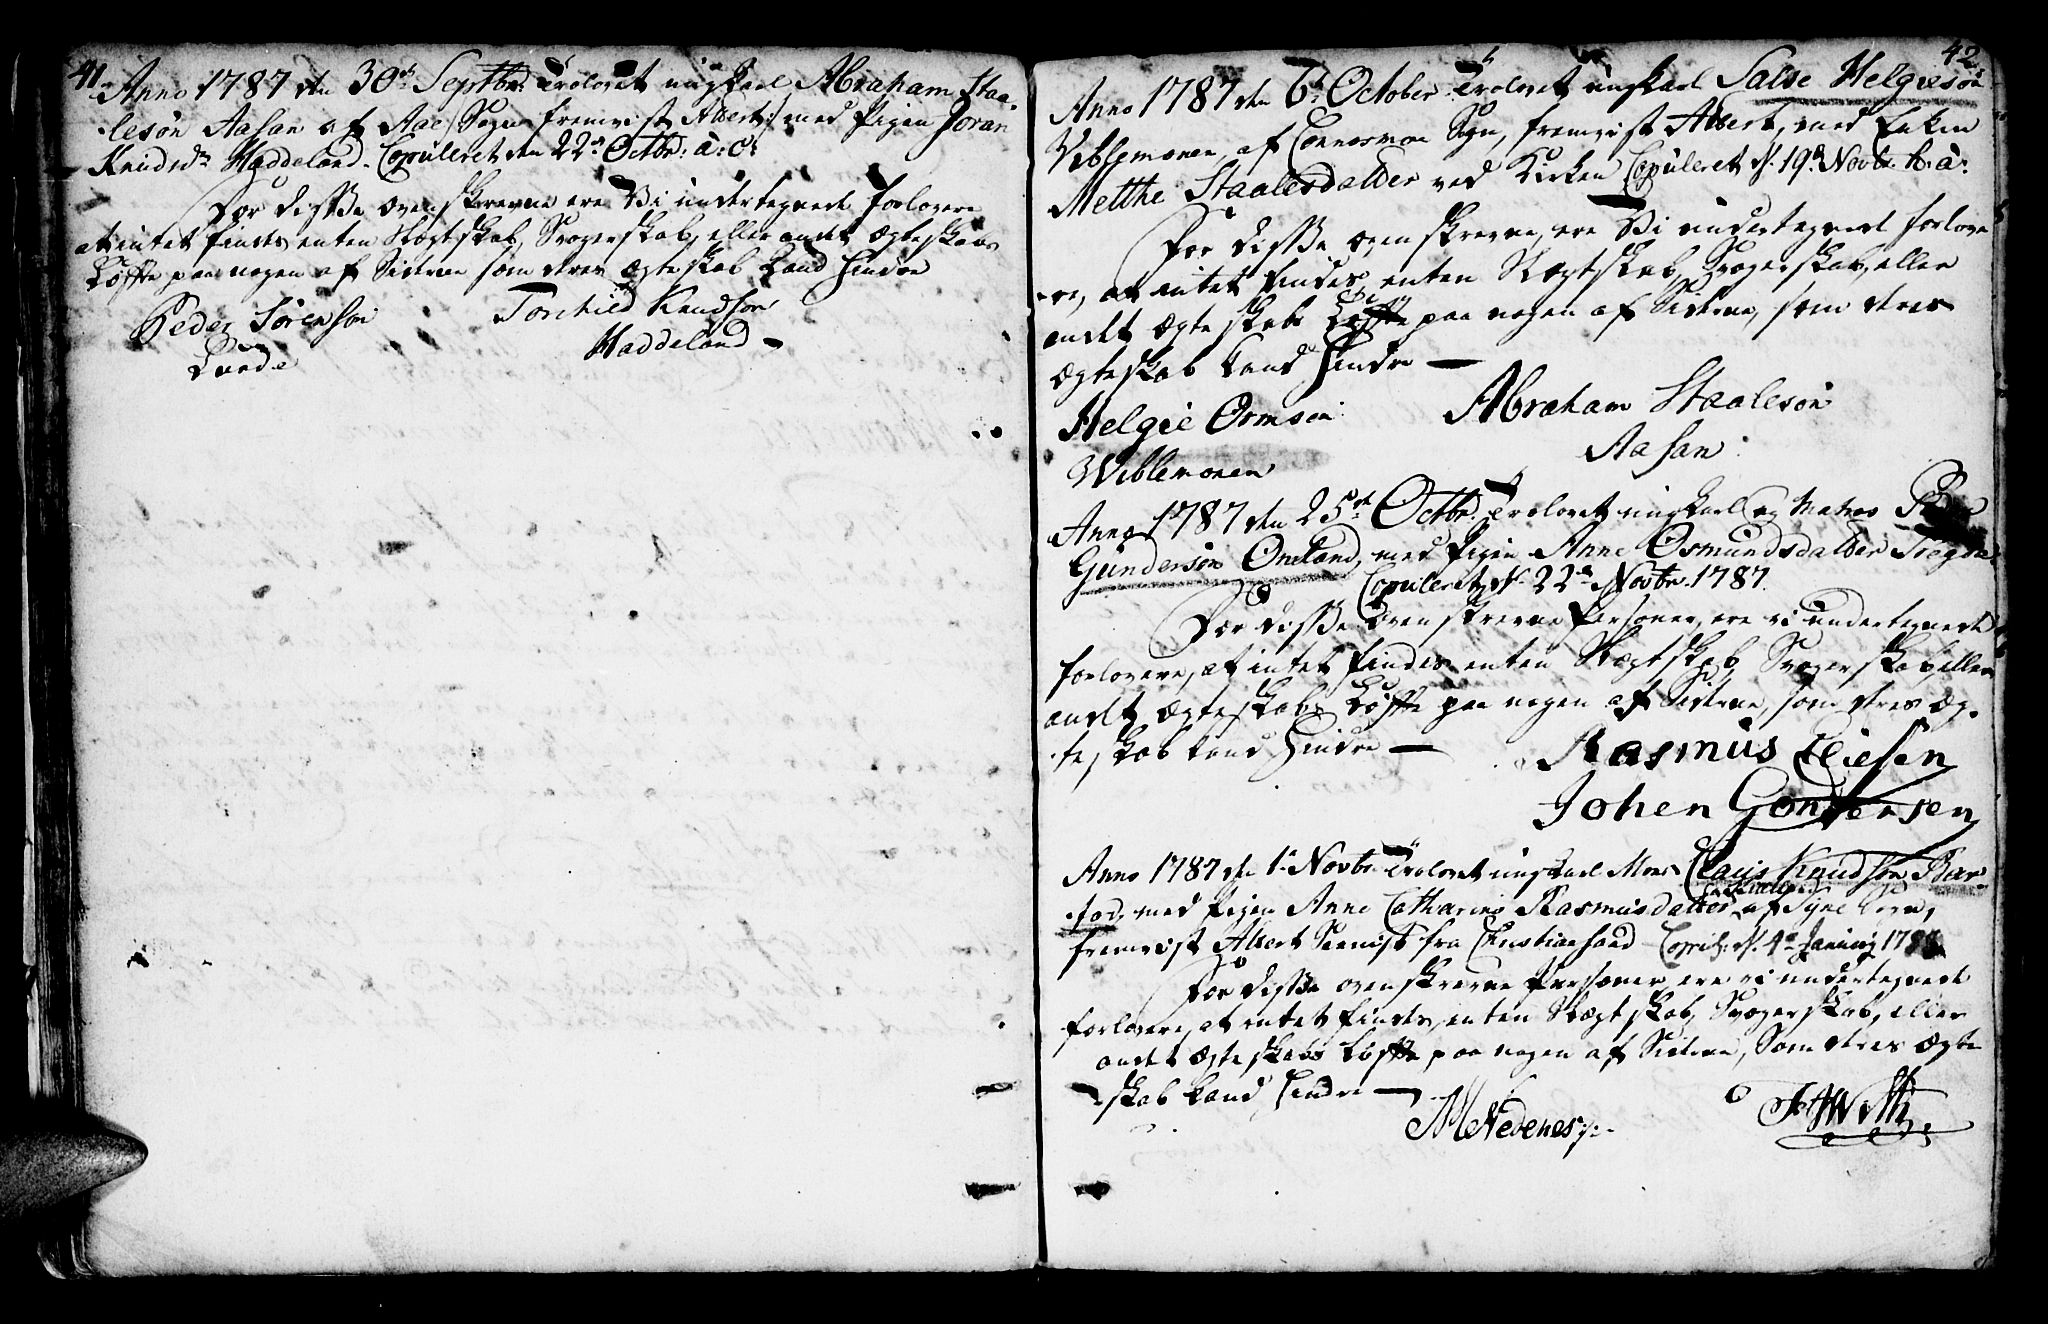 41.
Anno 1787 den 30th Septbr: Trolovet ungkarl Abraham Staa-
lesøn Aasan af Aae Sogn fremvist Attest, med Pigen Joran
Knudsdr Haddeland. Copuleret den 22de Octbr: a: c:
For disse ovenskrevne ere Vi undertegnede forlovere
at intet findes, enten Slægtskab, Svogerskab, eller andet Ægteskabs
Løffte paa nogen af Siderne som deres Ægteskab kand hindre
Peder Sørenson
Lunde
Torchild Knudson
Haddeland -
42.
Anno 1787 den 6te October Trolovet ungkarl Salve Helgiesøn
Viblemonen af Connesmoe Sogn, fremvist Attest, med Enken
Metthe Staalesdatter ved Kirken Copuleret d. 19de Novbr. h: a:
For disse ovenskrevne, ere Vi undertegnede forlove
re, at intet findes, enten Slægtskab, Svogerskab, eller
andet Ægteskabs Løffte paa nogen af Siderne, som deres
Ægteskab kand hindre —
Helgie Ormsøn
Viblemonen
Abraham Staalesøn
Aasan
Anno 1787 den 25de Octbr. Trolovet ungkarl og Matros
Gundersøn Øneland, med Pigen Anne Osmundsdatter Tregde
Copuleret d. 22de Novbr. 1787.
For disse ovenskrevne Personer, ere vi undertegnede
forlovere, at intet findes, enten Slægtskab, Svogerskab, eller
andet Ægteskabs Løffte paa nogen af Siderne, som deres Æg-
teskab kand hindre —
Rasmus
Johen Gondersen
Anno 1787 den 1te Novbr Trolovet ungkarl Mons. Claus Knudsøn Bar-
fod, med Pigen Anne Catharina Rasmusdatter af
fremvist Attest fra Christiansand Copul: d. 4de Januarij 1788.
For disse ovenskrevne Personer ere vi undertegnede
forlovere, at intet findes, enten Slægtskab, Svogerskab, eller
andet Ægteskabs Løffte paa nogen af Siderne, som deres Ægte
skab kand hindre —
MNedenes